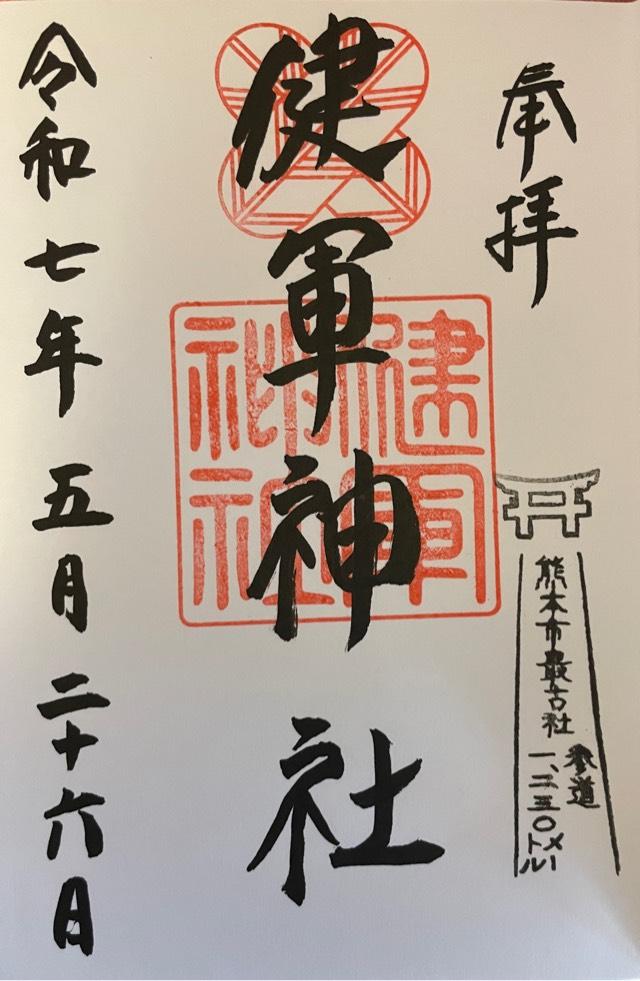 奉拝
熊本市最古社
参道
一、二三〇メートル
健軍神社
健軍神社
令和七年五月二十六日